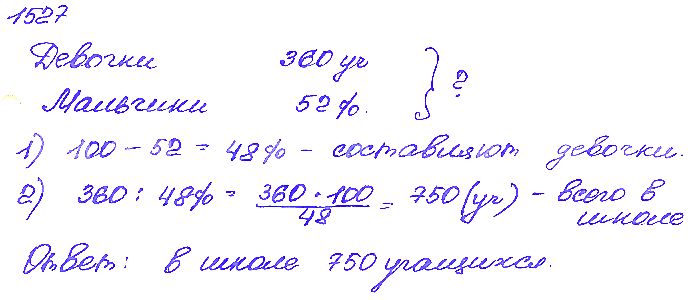 1527
Девочки 360 уч } ?
Мальчики 52%.
1) 100 - 52 = 48% - составляют девочки.
2) 360 : 48% = 360 · 100 / 48 = 750 (уч) - всего в школе
Ответ: в школе 750 учащихся.